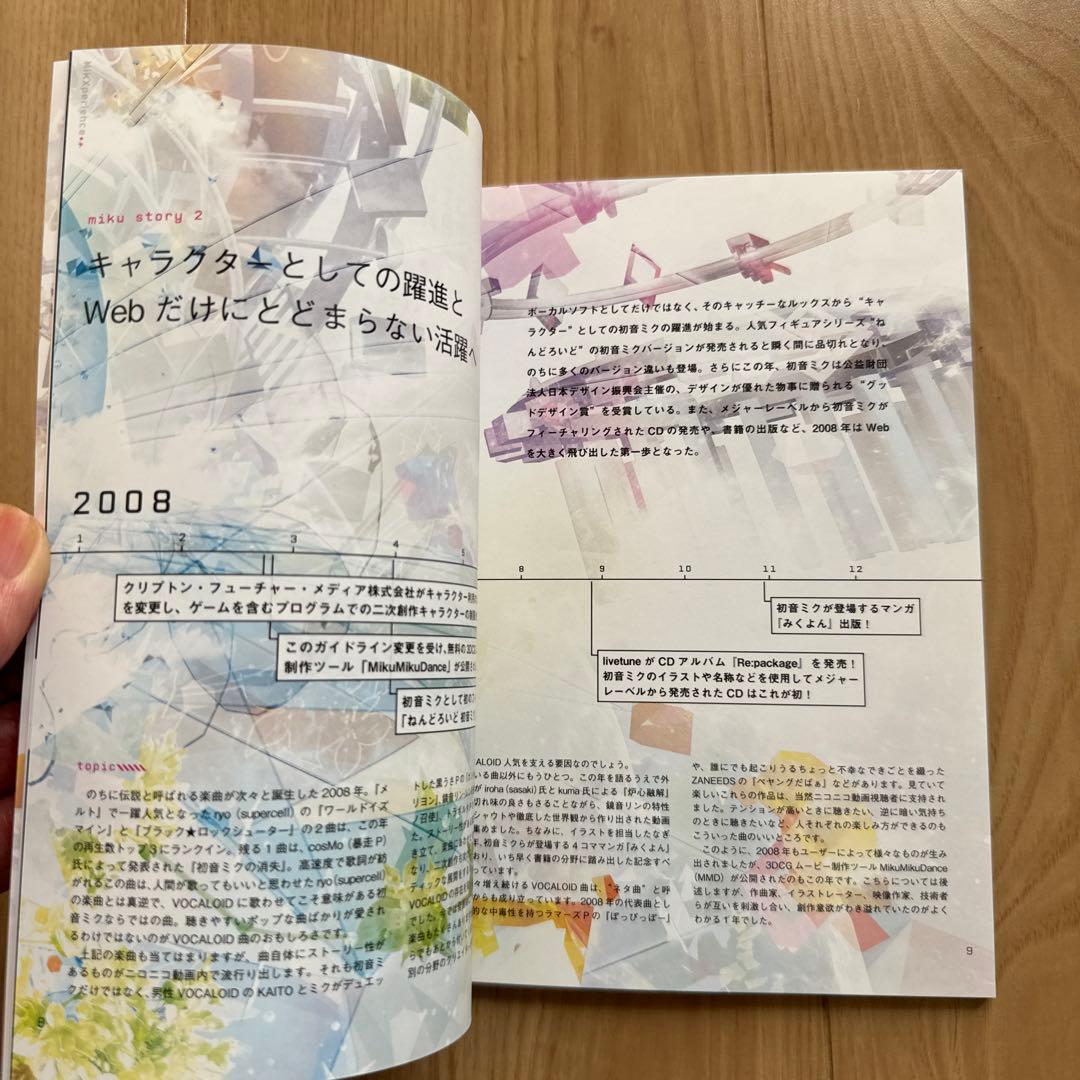 miku story 2
キャラクターとしての躍進と
Webだけにとどまらない活躍へ
2008
1 2 3 4 5
クリプトン・フューチャー・メディア株式会社がキャラクター
を変更し、ゲームを含むプログラムでの二次創作キャラクターの
このガイドライン変更を受け、無料の3DC
制作ツール「MikuMikuDance」が公開さ
初音ミクとして初の
「ねんどろいど 初音ミ
topic
のちに伝説と呼ばれる楽曲が次々と誕生した2008年。『メ
ルト』で一躍人気となったryo (supercell) の『ワールドイズ
マイン』と『ブラック★ロックシューター』の2曲は、この年
の再生数トップ3にランクイン。残る1曲は、cosMo (暴走P)
氏によって発表された『初音ミクの消失』。高速度で歌詞が紡
がれるこの曲は、人間が歌ってもいいと思わせたryo (supercell)
の楽曲とは真逆で、VOCALOIDに歌わせてこそ意味がある初
音ミクならではの曲。聴きやすいポップな曲ばかりが愛され
るわけではないのがVOCALOID曲のおもしろさです。
上記の楽曲も当てはまりますが、曲自体にストーリー性が
あるものがニコニコ動画内で流行り出します。それも初音ミ
クだけではなく、男性VOCALOIDのKAITOとミクがデュエッ
トした黒うさPの
リヨン』、鏡音リン
『召使』、トライ
た。ストーリー性が
き立て、楽曲に
なり、二次創作
ティックな展開
VOCALOIDの
でした。今では
楽曲もたくさん
らでもあと
別の分野のクリエイ
9
ボーカルソフトとしてだけではなく、そのキャッチーなルックスから“キャ
ラクター”としての初音ミクの躍進が始まる。人気フィギュアシリーズ“ね
んどろいど”の初音ミクバージョンが発売されると瞬く間に品切れとなり、
のちに多くのバージョン違いも登場。さらにこの年、初音ミクは公益財団
法人日本デザイン振興会主催の、デザインが優れた物事に贈られる“グッ
ドデザイン賞”を受賞している。また、メジャーレーベルから初音ミクが
フィーチャリングされたCDの発売や、書籍の出版など、2008年はWeb
を大きく飛び出した第一歩となった。
8 9 10 11 12
初音ミクが登場するマンガ
『みくよん』出版！
livetuneがCDアルバム『Re:package』を発売！
初音ミクのイラストや名称などを使用してメジャー
レーベルから発売されたCDはこれが初！
ALOID人気を支える要因なのでしょう。
いる曲以外にもうひとつ。この年を語るうえで外
が iroha (sasaki) 氏と kuma 氏による『炉心融解』
切れ味の良さもさることながら、鏡音リンの特性
シャウトや徹底した世界観から作り出された動画
集めました。ちなみに、イラストを担当したなぎ
、初音ミクらが登場する4コママンガ『みくよん』
おり、いち早く書籍の分野に踏み出した記念すべ
っています。
々増え続けるVOCALOID曲は、“ネタ曲”と呼
からも成り立っています。2008年の代表曲とし
的な中毒性を持つラマーズPの『ぽっぴっぽー』
や、誰にでも起こりうるちょっと不幸なできごとを綴った
ZANEEDSの『ペヤングだばぁ』などがあります。見ていて
楽しいこれらの作品は、当然ニコニコ動画視聴者に支持され
ました。テンションが高いときに聴きたい、逆に暗い気持ち
のときに聴きたいなど、人それぞれの楽しみ方ができるのも
こういった曲のいいところです。
このように、2008年もユーザーによって様々なものが生み
出されましたが、3DCGムービー制作ツールMikuMikuDance
(MMD) が公開されたのもこの年です。こちらについては後
述しますが、作曲家、イラストレーター、映像作家、技術者
らが互いを刺激し合い、創作意欲がわき溢れていたのがよく
わかる1年でした。
9